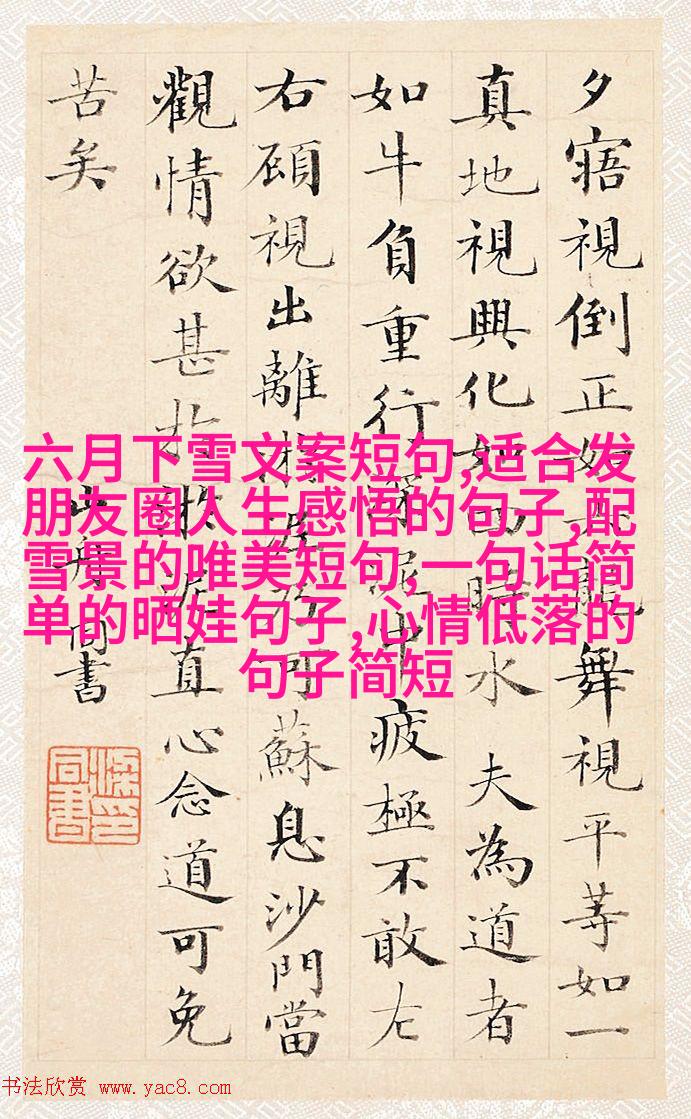 夕寤視倒正如龍舞視平等如一
真地視興化如四時水夫為道者
如牛負重行深泥中疲極不敢左
右顧視出離可蘇息沙門當
觀情欲甚於泥直心念道可免
苦矣
山舟同書
六月下雪文案短句,适合发
朋友圈人生感悟的句子,配
雪景的唯美短句,一句话简
单的晒娃句子,心情低落的
句子简短
书法欣赏 www.yac8.com